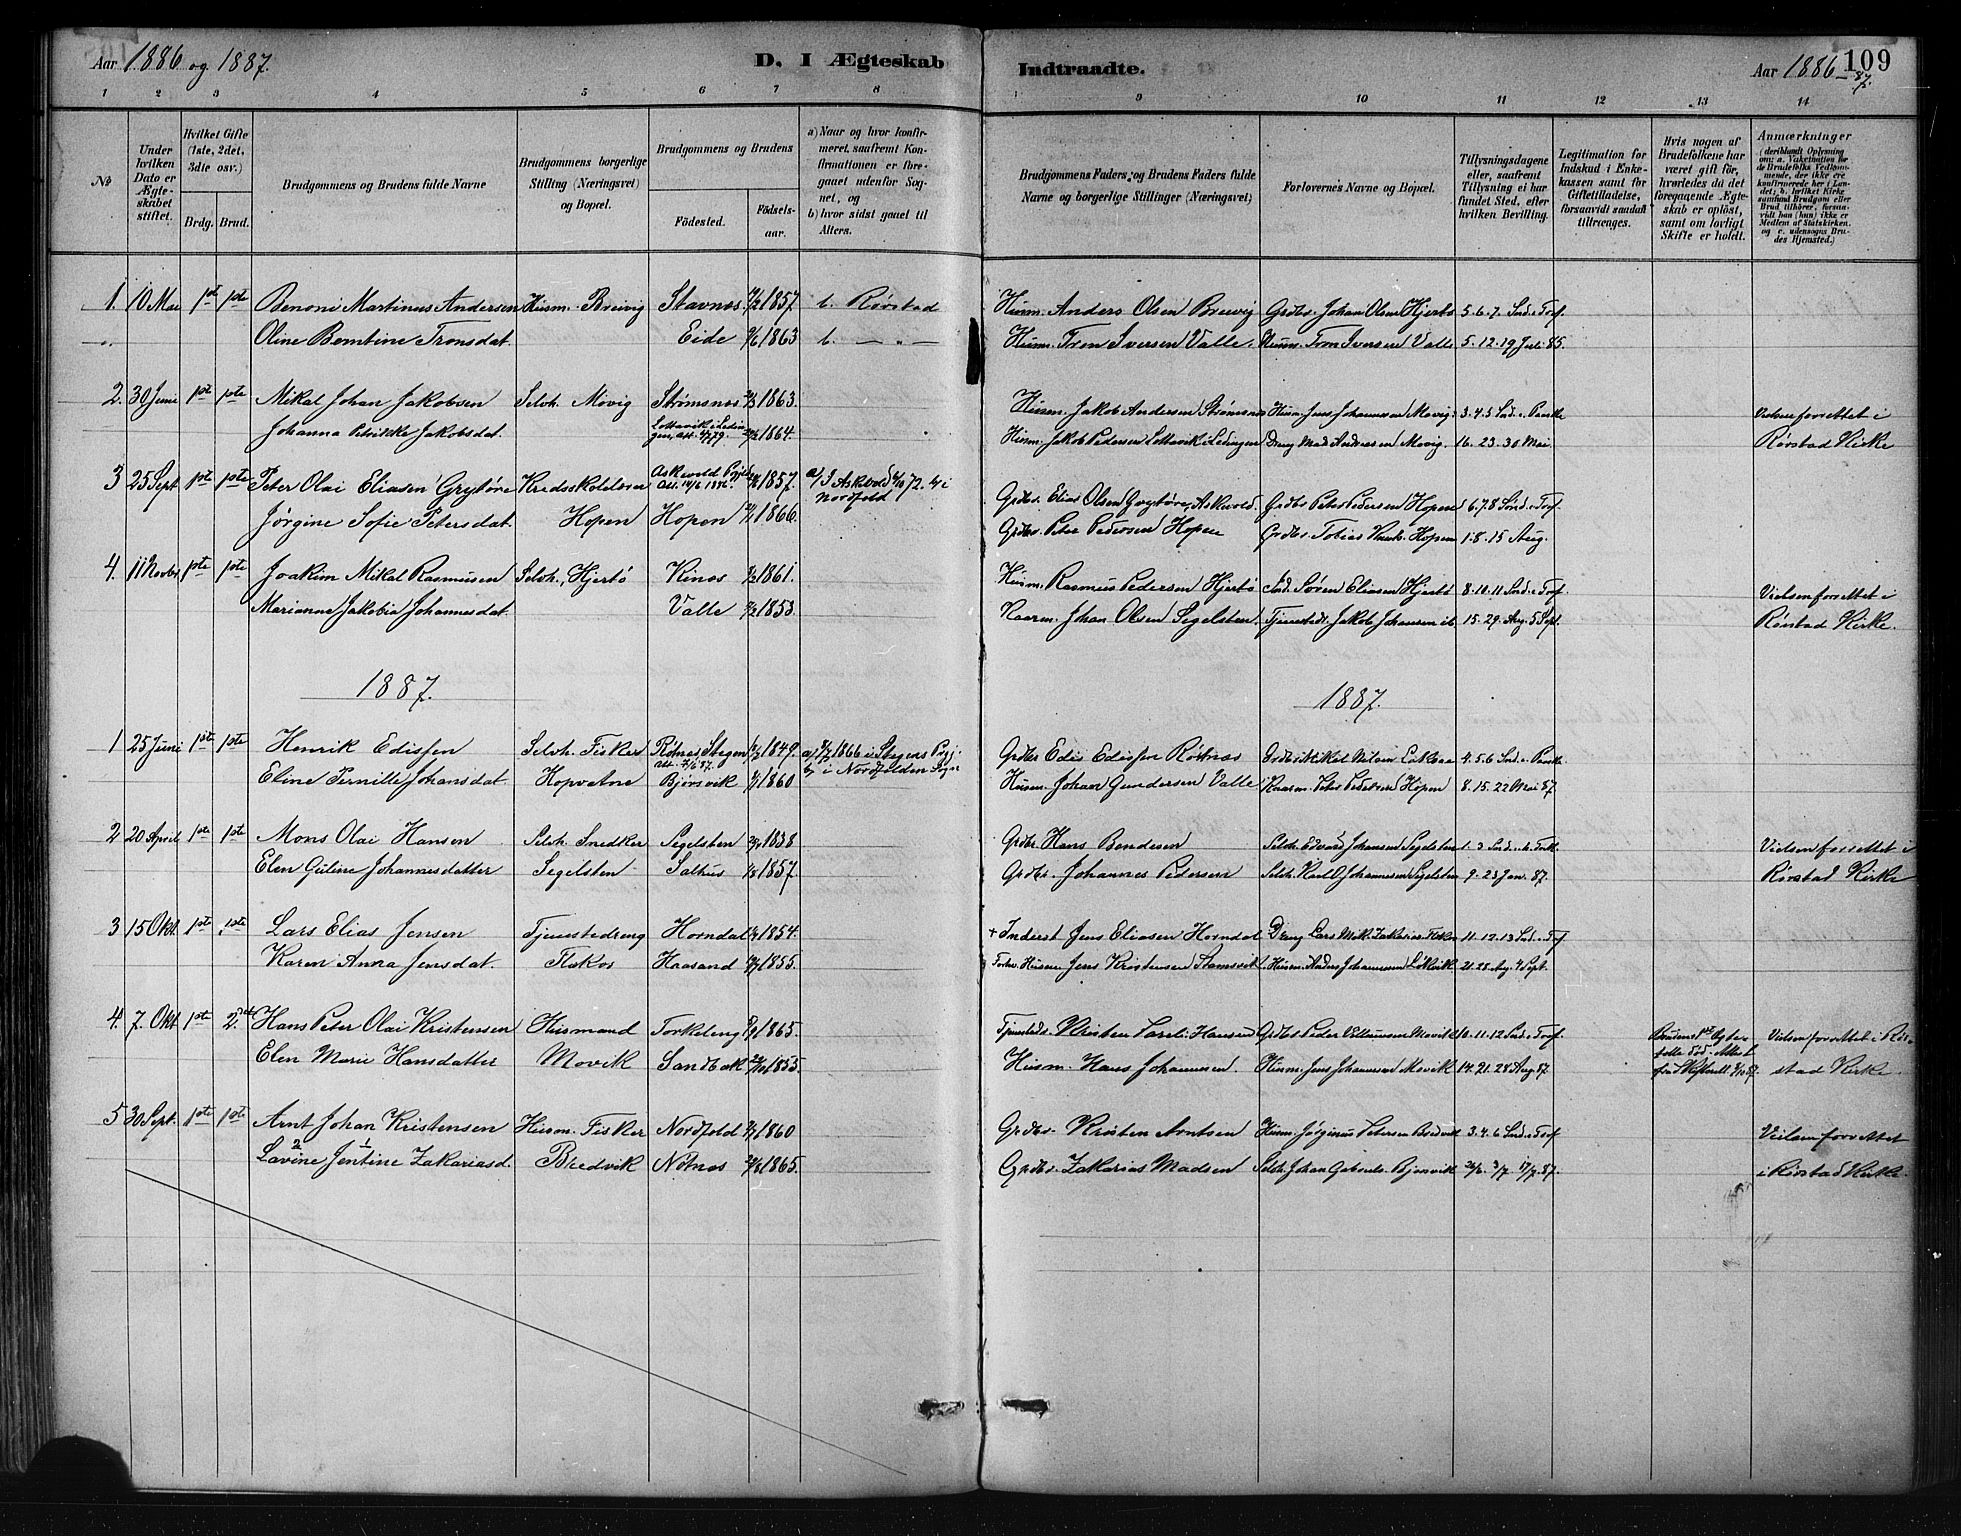 Aar 1886 og 1887.
D. I Ægteskab
Indtraadte.
Aar 1886-87.
109
1 2 3 4 5 6 7 8
9 10 11 12 13 14
No
Under hvilken Dato er Ægteskabet stiftet.
Hvilket Gifte (1ste, 2det, 3die osv.)
Brdg. Brud.
Brudgommens og Brudens fulde Navne
Brudgommens borgerlige Stilling (Næringsvei) og Bopæl.
Brudgommens og Brudens
Fødested.
Fødselsaar.
a) Naar og hvor konfirmeret, saafremt Konfirmationen er foregaaet udenfor Sognet, og
b) hvor sidst gaaet til Alters.
Brudgommens Faders og Brudens Faders fulde Navne og borgerlige Stillinger (Næringsvei)
Forlovernes Navne og Bopæl.
Tillysningsdagene eller, saafremt Tillysning ei har fundet Sted, efter hvilken Bevilling.
Legitimation for Indskud i Enkekassen samt for Giftetilladelse, forsaavidt saadan tiltrænges.
Hvis nogen af Brudefolkene har været gift før, hvorledes da det foregaaende Ægteskab er opløst, samt om lovligt Skifte er holdt.
Anmærkninger (deriblandt Oplysning om: a. Vakcination for de Brudefolks Vedkommende, der ikke ere konfirmerede her i Landet; b. hvilket Kirkesamfund Brudgom eller Brud tilhører, forsaavidt han (hun) ikke er Medlem af Statskirken, og c. udensogns Brudes Hjemsted.)
1. 10 Mai 1ste 1ste Benoni Martinus Andersen Husm. Breivig Stavnes 1857. b. Rørstad
Husm. Anders Olsen Breivig Grdbr. Johan Olsen Hjertø 5. 6. 7. Snd. e. Tref.
Oline Bentine Tronsdat. Eide 1863 b. — " —
Husm. Tron Iversen Valle. Husm. Tron Iversen Valle 5. 12. 19 Juli 85.
2. 30 Juni 1ste 1ste Mikal Johan Jakobsen Selvh. Movig Strømsnes 1863.
Husm. Jakob Andersen Strømsnes Husm. Jens Johannesen Movig. 3. 4. 5 Snd. e. Paaske Vielsen forrettet i
Johanna Petrikke Jakobsdat. 1864.
Husm. Jakob Pedersen Lottavik i Lødingen Dreng Mads Andreasen Movig. 16. 23. 30 Mai Rørstad Kirke
3 25 Sept. 1ste 1ste Peter Olai Eliasen Grytøre Kredsskolelærer 1857. a/ I Askevold 72. b/ i Nordfold
Grdbr. Elias Olsen Grytøre, Askevold. Grdbr. Peter Pedersen Hopen 6. 7. 8 Sønd. e. Tref.
Jørgine Sofie Petersdat. Hopen Hopen 1866.
Grdbr. Peter Pedersen Hopen Grdbr. Tobias Hopen 1. 8. 15 Aug.
4. 11 Novbr 1ste 1ste Joakim Mikal Rasmusen Selvh., Hjertø Kines 1861.
Husm. Rasmus Pedersen Hjertø Ind. Søren Eliasen Hjertø 8. 10. 11 Snd. e. Tref. Vielsen forrettet i
Marianne Jakobia Johannesdat. Valle 1853.
Kaarm. Johan Olsen Segelsten. Tjenestedr. Jakob Johansen ib. 15. 29. Aug. 5 Sept. Rørstad Kirke.
1887.
1887.
1 25 Juni 1ste 1ste Henrik Edissen Selvh. Fisker Røtnes, Stegen 1849. a/ 1866 i Stegens Prgj.
Grdbr. Edis Edissen Røtnes Grdbr. Mikal Nilsen 4. 5. 6 Snd. e. Paaske
Eline Pernille Johansdat. Hopvatne Bjørsvik 1860 b/ i Nordfolden Sogn
Husm. Johan Gundersen Valle Kaarm. Peter Pedersen Hopen 8. 15. 22 Mai 87.
2 20 April 1ste 1ste Mons Olai Hansen Selvh. Snedker Segelsten 1838
Grdbr. Hans Bendesen Selvh. Edvard Johansen Segelsten 1. 3 Snd. e. H. Vielsen forrettet i
Elen Guline Johannesdatter Segelsten Salhus 1857.
Grdbr. Johannes Pedersen Selvh. Karl O. Johannesen Segelsten 9. 23 Jan. 87. Rørstad Kirke
3 15 Okt. 1ste 1ste Lars Elias Jensen Tjenestedreng Horndal 1854.
+ Inderst Jens Eliasen Horndal Dreng Lars Mik. Zakarias. 11. 12. 13 Snd. e. Tref
Karen Anna Jensdat. Flakos Haasand 1855.
Husm. Jens Kristensen Husm. Anders Johannesen Løkvik 21. 28 Aug. 4 Sept.
4. 7. Okt 1ste 2det Hans Peter Olai Kristensen Husmand Torkeleng 1865.
Tjenestedr. Kristen Hansen Grdbr. Peder Movik 10. 11. 12 Snd. e. Tref. Brudens 1ste Ægtefælle død. Attest fra Skifteret Vielsen forrettet i Rørstad Kirke.
Elen Marie Hansdatter Movik Sandbak 1855.
Husm. Hans Johannesen. Husm. Jens Johannesen Movik 14. 21. 28 Aug 87.
5. 30 Sept. 1ste 1ste Arnt Johan Kristensen Husm. Fisker Nordfold 1860
Grdbr. Kristen Arntsen Husm. Jørginus Petersen Bredvik 3. 4. 6 Snd. e. Tref Vielsen forrettet
Lavine Jentine Zakariasd. Bredvik Nøtnes 1865.
Grdbr. Zakarias Madsen Selvh. Johan Gabriels. Bjørsvik 26/6. 3/7 17/7. 87. i Rørstad Kirke.